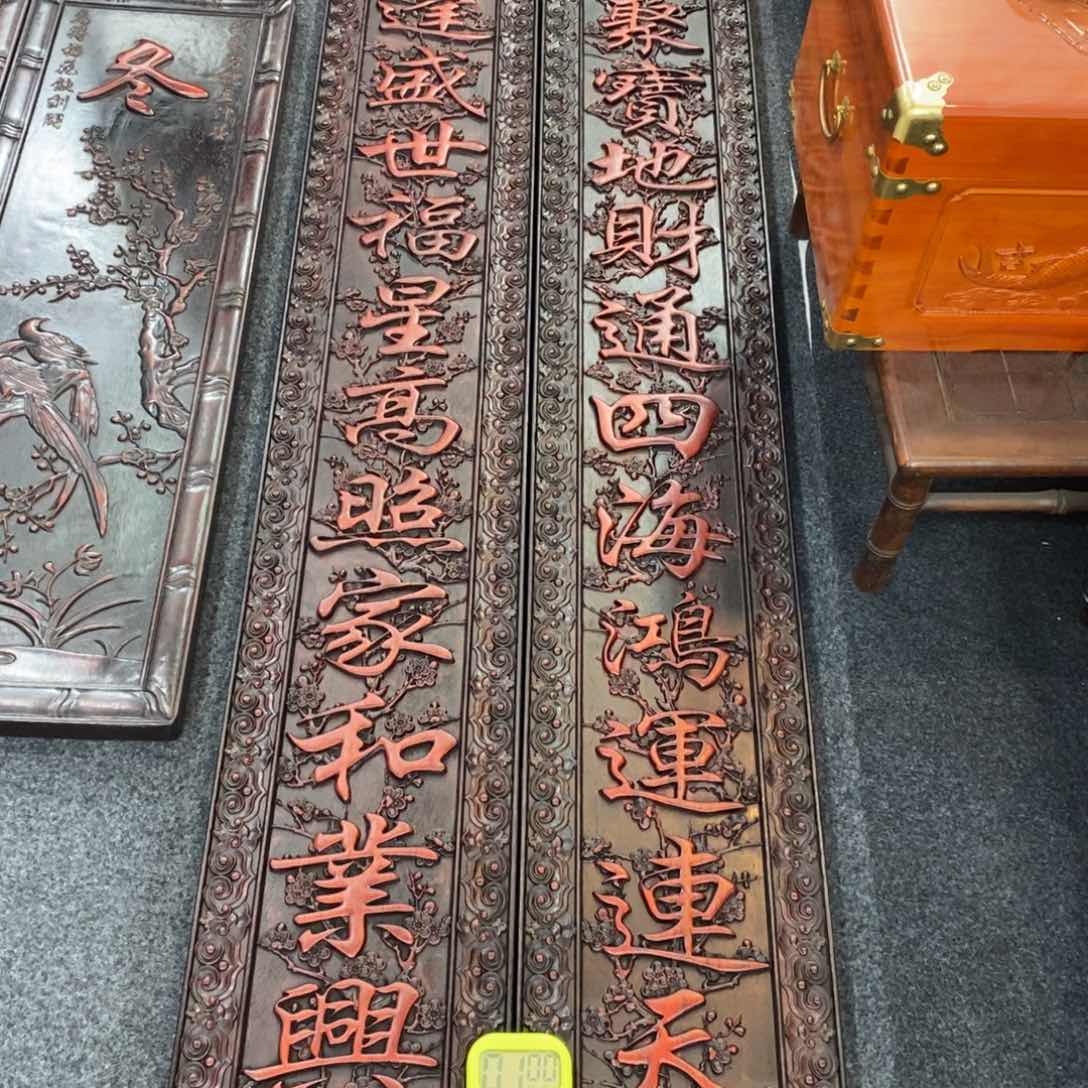 聚寶地財通四海鴻運連天
逢盛世福星高照家和業興
冬
01:00